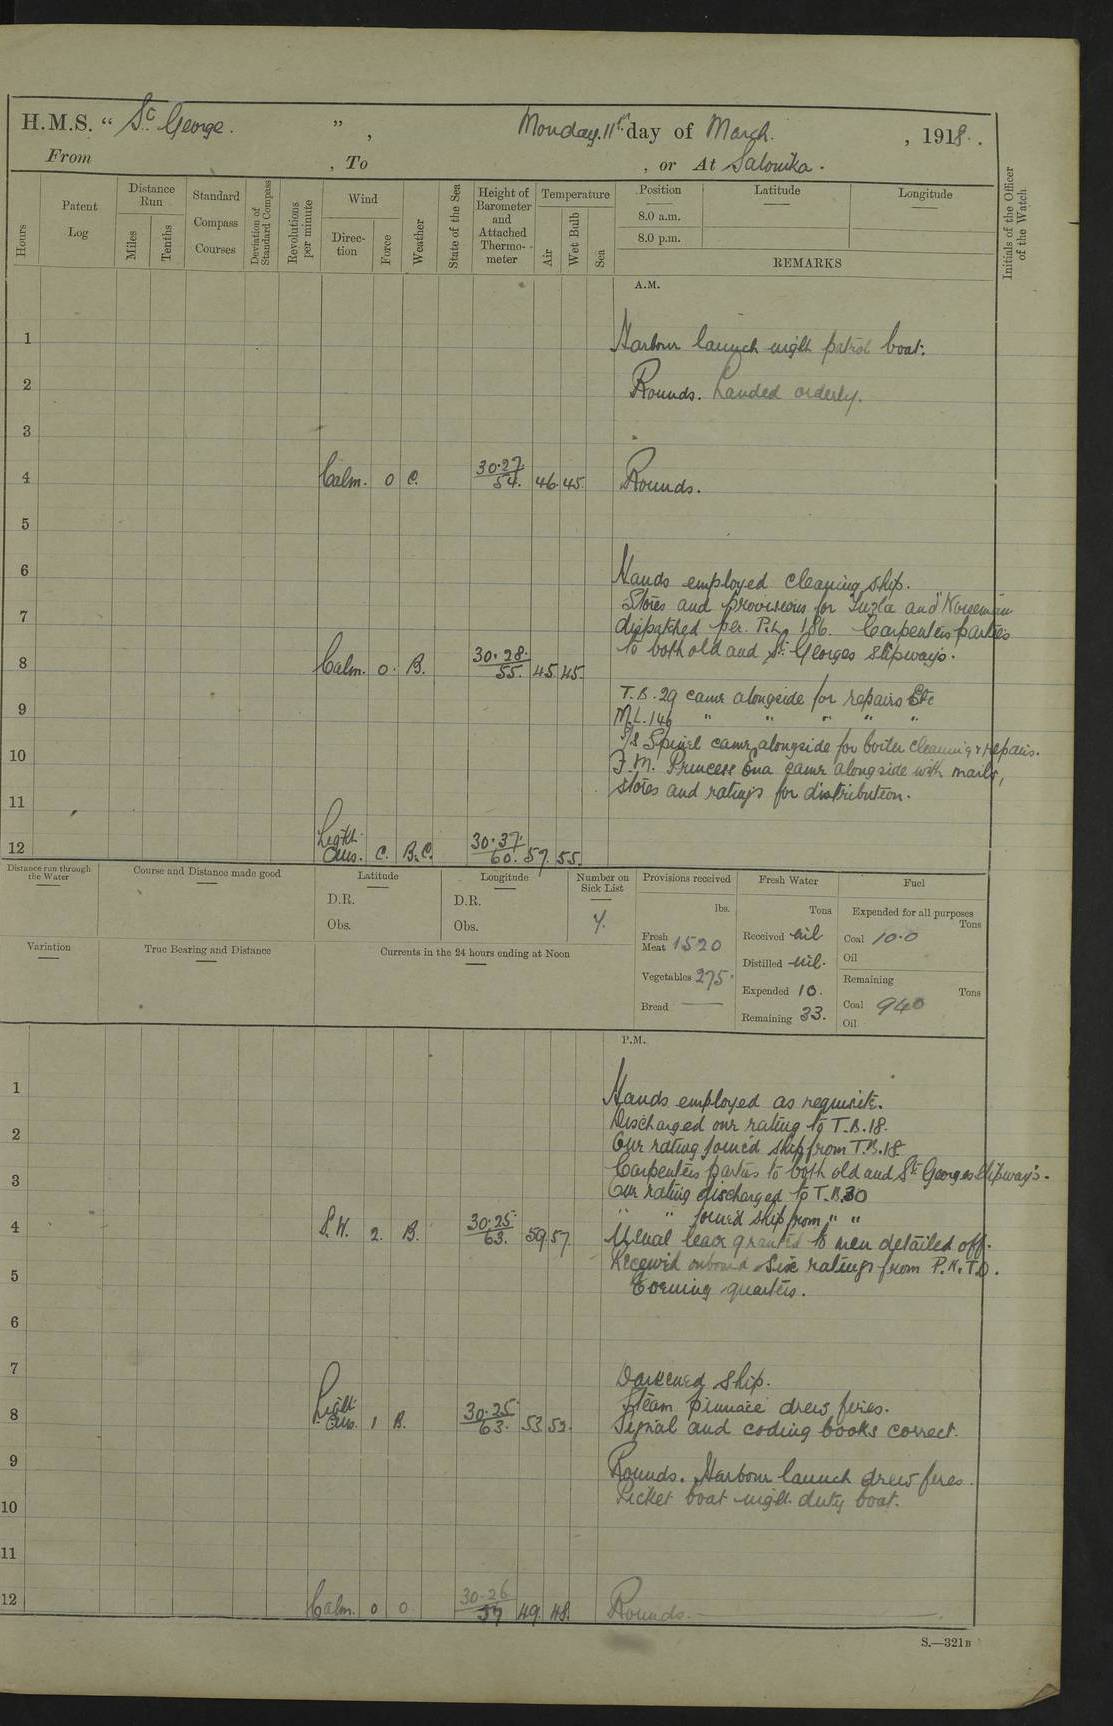 H.M.S. “ St George. ” , Monday. 11th day of March. , 1918.
From , To , or At Salonika.
Hours
Patent Log
Distance Run
Miles
Tenths
Standard Compass Courses
Deviation of Standard Compass
Revolutions per minute
Wind
Direction
Force
Weather
State of the Sea
Height of Barometer and Attached Thermometer
Temperature
Air
Wet Bulb
Sea
Position
8.0 a.m.
8.0 p.m.
Latitude
Longitude
REMARKS
Initials of the Officer of the Watch
A.M.
1 Harbour launch night patrol boat.
2 Rounds. Landed orderly.
3
4 Calm. 0 C. 30.27 54. 46. 45. Rounds.
5
6 Hands employed cleaning ship.
Stores and provisions for Tuzla and
7 dispatched per. P.L. 186. Carpenters parties
to both old and St Georges slipways.
8 Calm. 0. B. 30.28. 55. 45. 45.
T.B. 29 came alongside for repairs Etc
9 M.L. 146 " " " " "
S/S Spinel came alongside for boiler cleaning & repairs.
10 F.M. Princess Ena came alongside with mails,
stores and ratings for distribution.
11
12 Light airs. C. B.C. 30.37. 60. 57. 55.
Distance run through the Water
Course and Distance made good
Latitude
D.R.
Obs.
Longitude
D.R.
Obs.
Number on Sick List
4.
Provisions received
lbs.
Fresh Meat 1520
Vegetables 275.
Bread ——
Fresh Water
Tons
Received nil
Distilled nil.
Expended 10.
Remaining 33.
Fuel
Expended for all purposes
Tons
Coal 10.0
Oil
Remaining
Tons
Coal 940
Oil
Variation
True Bearing and Distance
Currents in the 24 hours ending at Noon
P.M.
1 Hands employed as requisite.
Discharged one rating to T.B. 18.
2 One rating joined ship from T.B. 18
Carpenters parties to both old and St Georges slipway's.
3 One rating discharged to T.B. 30
" " joined ship from " "
4 S.W. 2. B. 30.25 63. 59 57. Usual leave granted to men detailed off.
Received onboard six ratings from P.N.T.O.
5 Evening quarters.
6
7 Darkened ship.
Steam pinnace drew fires.
8 Light airs. 1 B. 30.25 63. 53 52. Signal and coding books correct.
9 Rounds. Harbour launch drew fires.
Picket boat night duty boat.
10
11
12 Calm. 0 0 30.26 57 49. 48. Rounds.
S.—321B